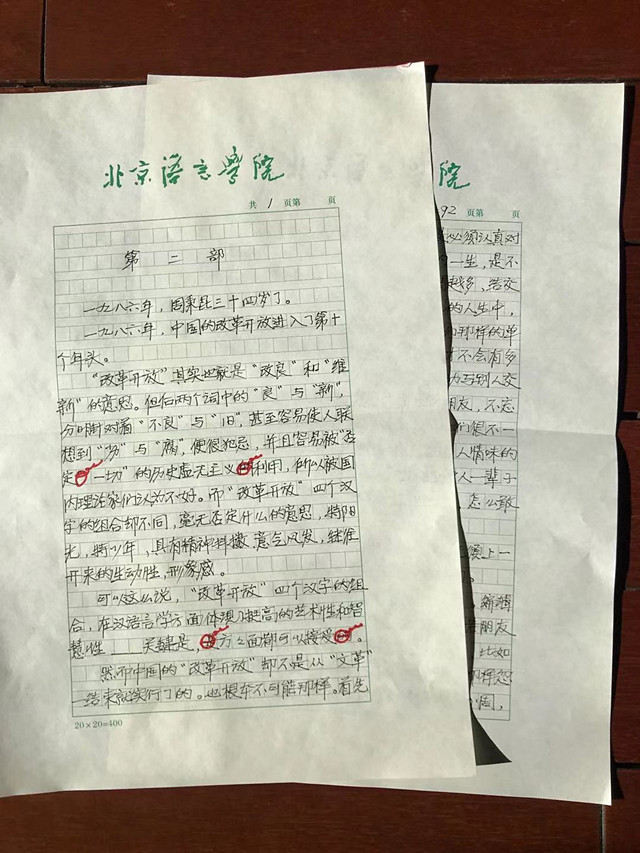 北京语言学院
共 1 页第 页
第二部
一九八六年，周秉昆三十四岁了。
一九八六年，中国的改革开放进入了第十
个年头。
"改革开放"其实也就是"改良"和"维
新"的意思。但后两个词中的"良"与"新"，
分明对着"不良"与"旧"，甚至容易使人联
想到"劣"与"腐"，便很犯忌，并且容易被"否
定一切"的历史虚无主义利用，所以被国
内理论家们认为不好。而"改革开放"四个汉
字的组合却不同，毫无否定什么的意思，特阳
光，特少年，具有精神抖擞，意气风发，继往
开来的生动性，形象感。
可以这么说，"改革开放"四个汉字的组
合，在汉语言学方面体现了挺高的艺术性和智
慧性——关键是，方方面面都可以接受。
然而中国的"改革开放"却不是从"文革"
一结束就实行了的。也根本不可能那样。首先
20×20=400
院
92 页第 页
必须认真对
一生，是不
越多，结交
的人生中，
那样的单
不会有多
与别人交
朋友，不忘
们很不一
人情味的
人一辈子
，怎么敢
上一
编辑
朋友
比如
那样怨
周，